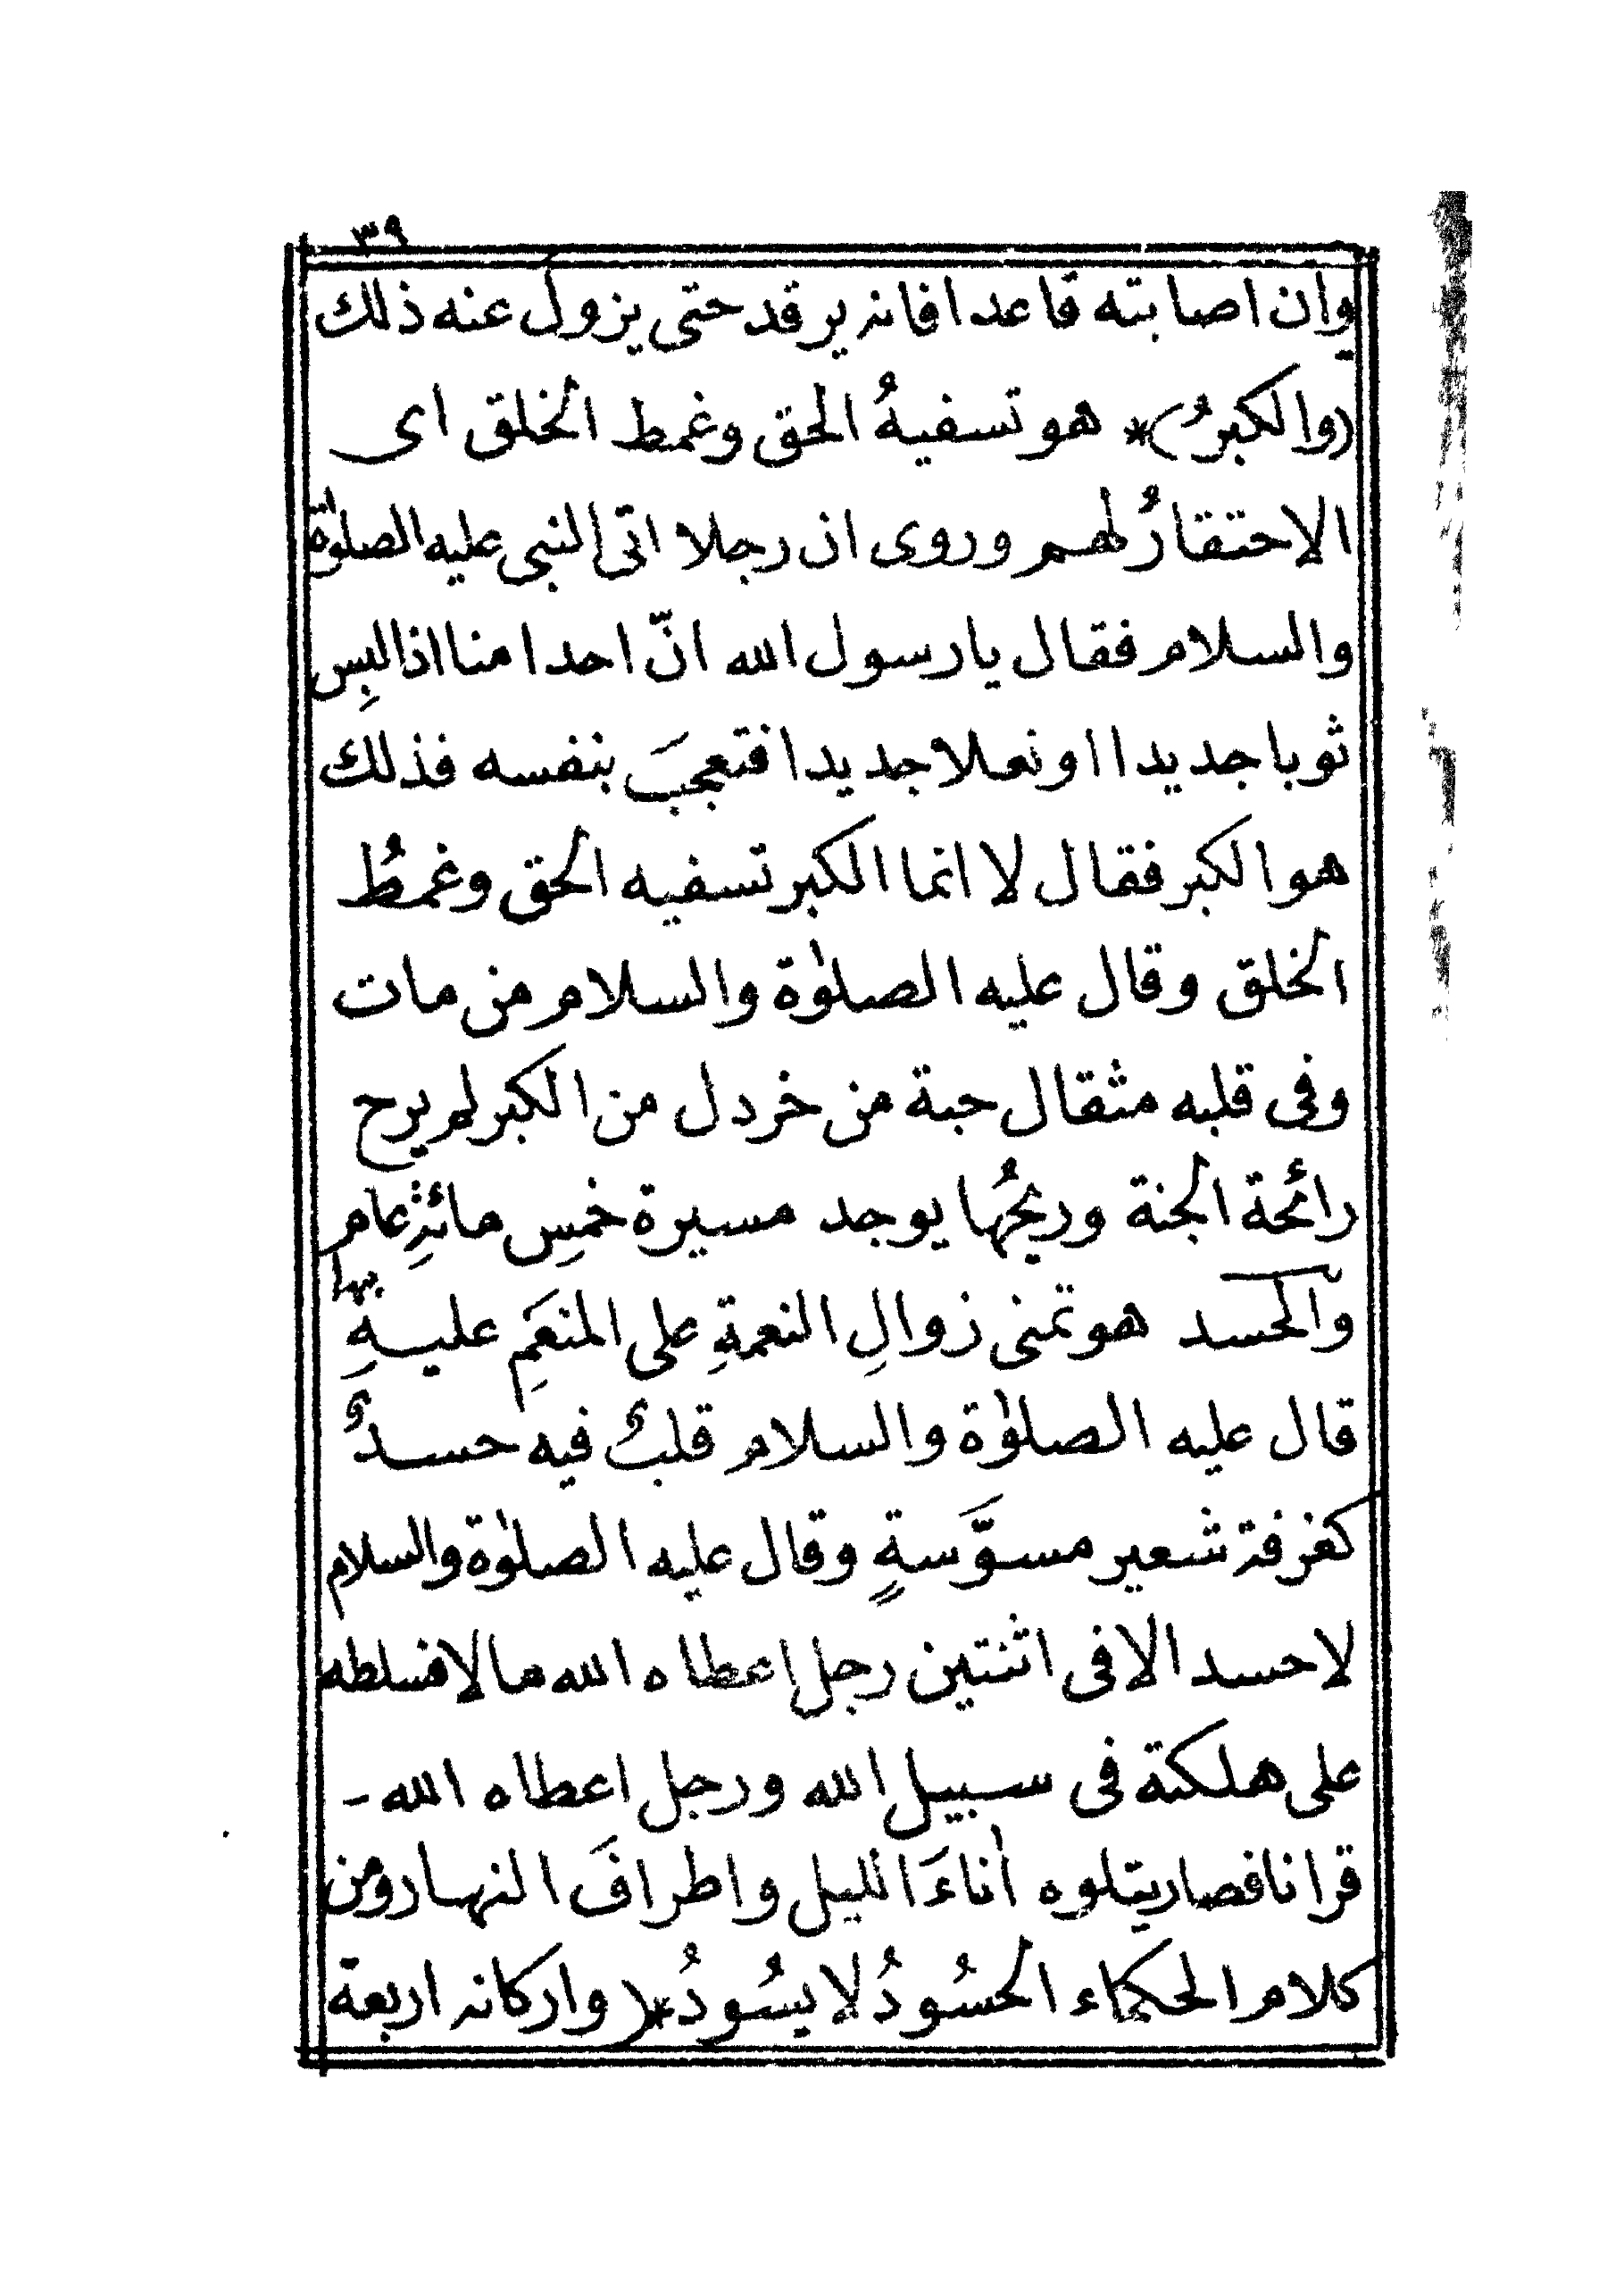 ٣٩
وان اصابته قاعدا فانه يرقد حتى يزول عنه ذلك
(والكبرُ)* هو تسفيهُ الحق وغمط الخلق اى
الاحتقارُ لهم وروى ان رجلا اتى النبى عليه الصلوٰة
والسلام فقال يا رسول الله انّ احدا منا اذا لبِس
ثوبا جديدا او نعلا جديدا فتعجبَ بنفسه فذلك
هو الكبر فقال لا انما الكبر تسفيه الحق وغمطُ
الخلق وقال عليه الصلوٰة والسلام من مات
وفى قلبه مثقال حبة من خردل من الكبر لم يرح
رائحة الجنة وريحُها يوجد مسيرة خمسِ مائةِ عام
بها
والحسد هو تمنى زوالِ النعمةِ على المنعَمِ عليهِ
قال عليه الصلوٰة والسلام قلبٌ فيه حسدٌ
كغرفة شعير مسوَّسةٍ وقال عليه الصلوٰة والسلام
لا حسد الا فى اثنتين رجل اعطاه الله مالا فسلطه
على هلكته فى سبيل الله ورجل اعطاه الله -
قرانا فصار يتلوه اٰناءَ الليل واطرافَ النهار ومن
كلام الحكماء الحسُودُ لا يسُودُ * واركانه اربعة